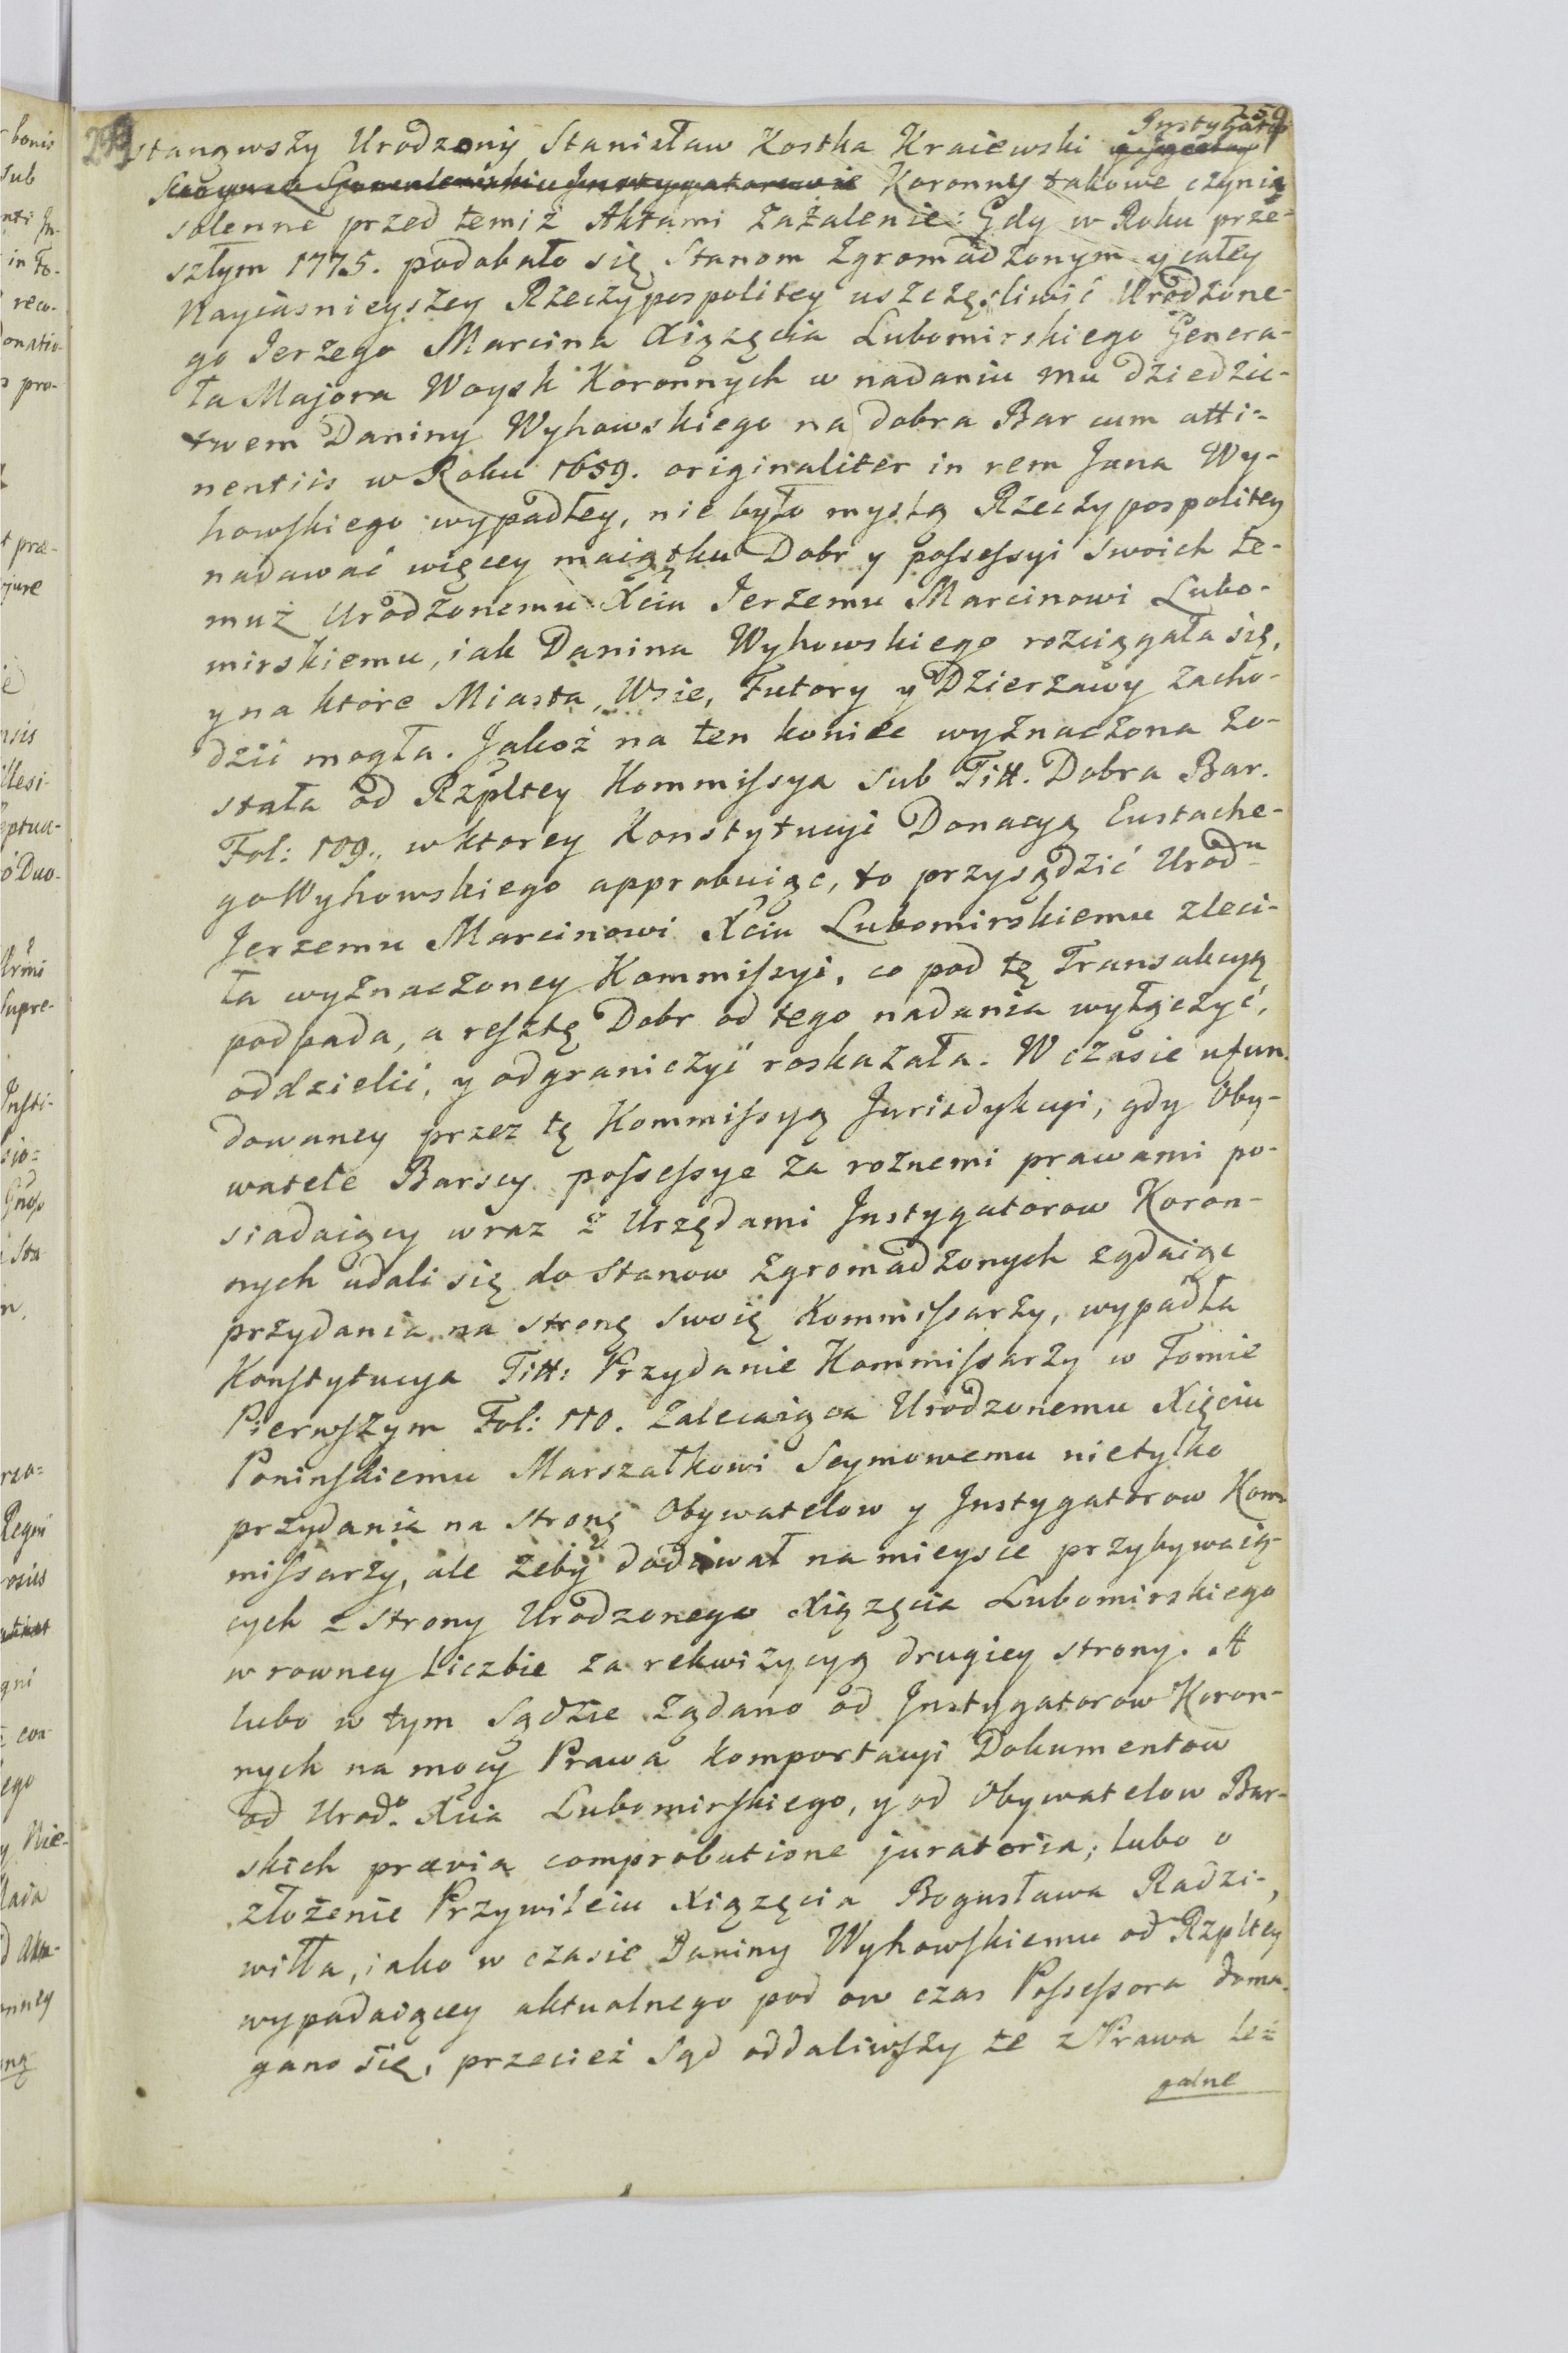 259
stanąwszy Urodzony Stanisław Kostka Kraiewski Instygator
Koronny takowe czynią
solenne przed temiż Aktami zażalenie: Gdy w Roku prze-
szłym 1775. podobało się Stanom Zgromadzonym y całey
Nayiaśnieyszey Rzeczypospolitey uszczęśliwić Urodzone-
go Jerzego Marcina Xiążęcia Lubomirskiego Genera-
ła Majora Woysk Koronnych w nadaniu mu dziedzic-
twem Daniny Wyhowskiego na dobra Bar cum atti-
nentiis w Roku 1659. originaliter in rem Jana Wy-
howskiego wypadłey, nie było myślą Rzeczypospolitey
nadawać więcey maiątku Dobr y possessyi swoich te-
muż Urodzonemu Xciu Jerzemu Marcinowi Lubo-
mirskiemu, iak Danina Wyhowskiego rozciągała się,
y na ktore Miasta, Wsie, Futory y Dzierżawy zacho-
dzić mogła. Jakoż na ten koniec wyznaczona zo-
stała od Rzpltey Kommissya sub Titt. Dobra Bar.
Fol: 109., w ktorey Konstytucyi Donacyą Eustache-
go Wyhowskiego approbuiąc, to przysądzić Urodu
Jerzemu Marcinowi Xciu Lubomirskiemu zleci-
ła wyznaczoney Kommissyi, co pod tę Transakcyą
podpada, a resztę Dobr od tego nadania wyłączyć,
oddzielić, y odgraniczyć roskazała. W czasie ufun-
dowaney przez tę Kommissyą Jurisdykcyi, gdy Oby-
watele Barscy possessye za rożnemi prawami po-
siadaiący wraz z Urzędami Instygatorow Koron-
nych udali się do Stanow Zgromadzonych żądaiąc
przydania na stronę swoię Kommissarzy, wypadła
Konstytucya Titt: Przydanie Kommissarzy w Tomie
Pierwszym Fol: 110. zalecaiąca Urodzonemu Xięciu
Poninskiemu Marszałkowi Seymowemu nietylko
przydania na stronę Obywatelow y Instygatorow Kom-
missarzy, ale żeby dodawał na mieysce przybywaią-
cych z strony Urodzonego Xiążęcia Lubomirskiego
w rowney liczbie za rekwizycyą drugiey strony. A
lubo w tym Sądzie żądano od Instygatorow Koron-
nych na mocy Prawa komportacyi Dokumentow
od Urodo. Xcia Lubomirskiego, y od Obywatelow Bar-
skich prævia comprobatione juratoria; lubo o
złożenie Przywileiu Xiążęcia Bogusława Radzi-
wiłła, iako w czasie Daniny Wyhowskiemu od Rzpltey
wypadaiącey aktualnego pod ow czas Possessora doma-
gano się, przecież Sąd oddaliwszy te z Prawa le-
galne